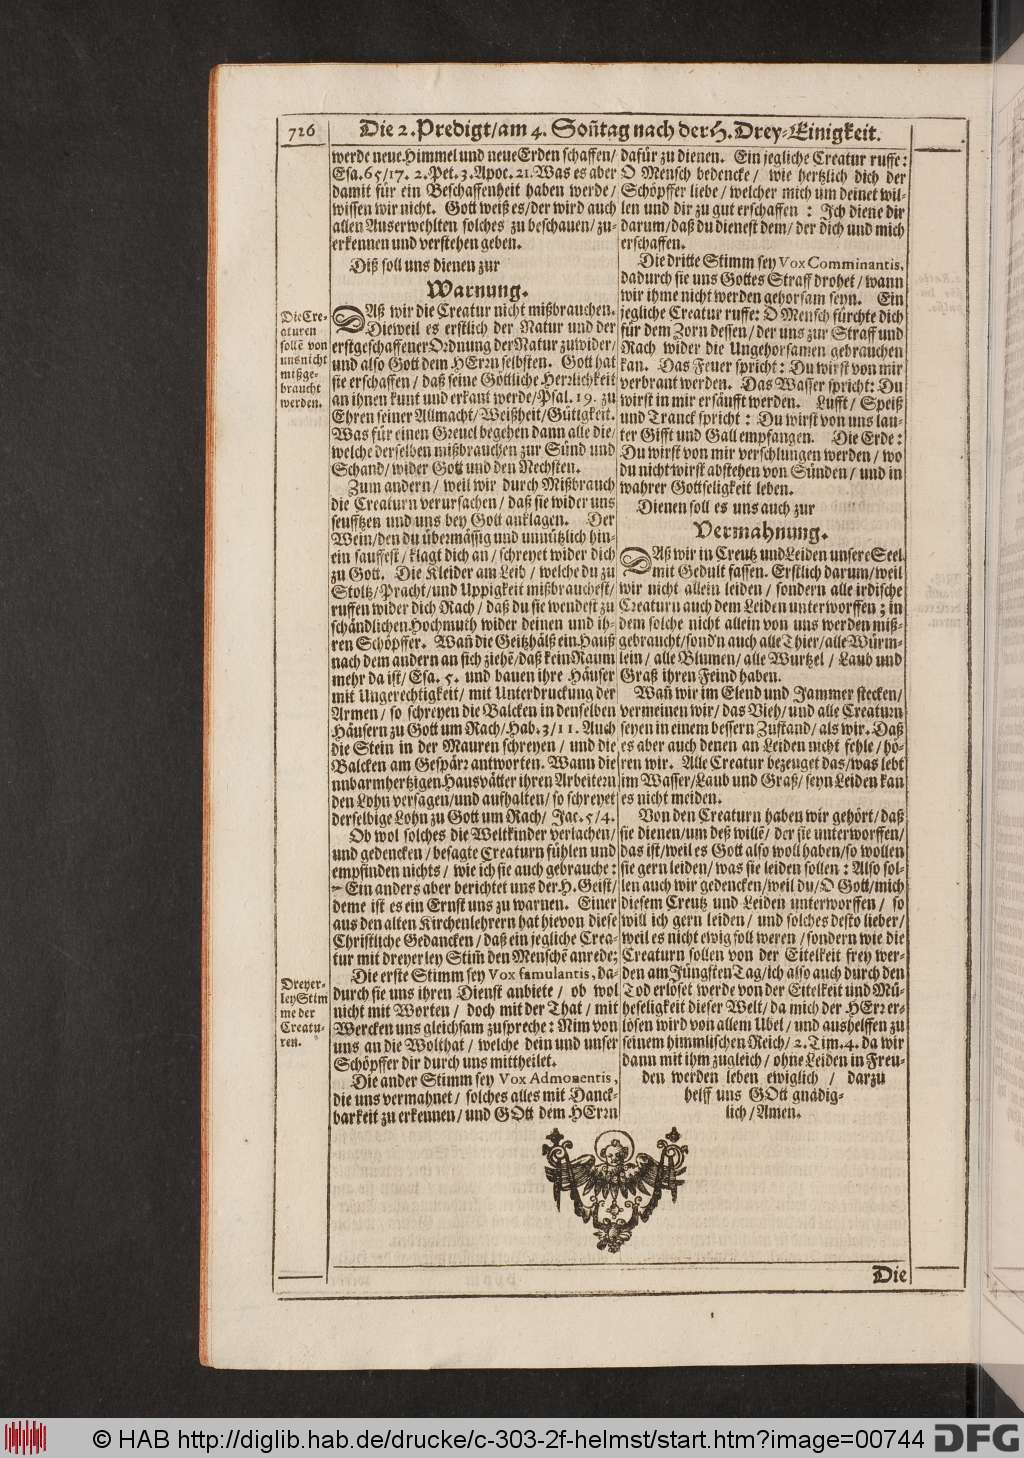 726
Die 2. Predigt/am 4. Soñtag nach der H. Drey-Einigkeit.
werde neue Himmel und neue Erden schaffen/
Esa. 65/17. 2. Pet. 3. Apoc. 21. Was es aber
damit für ein Beschaffenheit haben werde/
wissen wir nicht. Gott weiß es/der wird auch
allen Auserwehlten solches zu beschauen/zu-
erkennen und verstehen geben.
Diß soll uns dienen zur
Warnung.
Die Cre-
aturen
sollē von
uns nicht
mißge-
braucht
werden.
DAß wir die Creatur nicht mißbrauchen.
Dieweil es erstlich der Natur und der
erstgeschaffener Ordnung der Natur zuwider/
und also Gott dem HErrn selbsten. Gott hat
sie erschaffen/ daß seine Göttliche Herrlichkeit
an ihnen kunt und erkant werde/Psal. 19. zu
Ehren seiner Allmacht/Weißheit/Gütigkeit.
Was für einen Greuel begehen dann alle die/
welche derselben mißbrauchen zur Sünd und
Schand/wider Gott und den Nechsten.
Zum andern/ weil wir durch Mißbrauch
die Creaturn verursachen/ daß sie wider uns
seufftzen und uns bey Gott anklagen. Der
Wein/den du übermässig und unnützlich hin-
ein sauffest/ klagt dich an/ schreyet wider dich
zu Gott. Die Kleider am Leib/ welche du zu
Stoltz/Pracht/und Uppigkeit mißbrauchest/
ruffen wider dich Rach/ daß du sie wendest zu
schändlichen Hochmuth wider deinen und ih-
ren Schöpffer. Wañ die Geitzhälß ein Hauß
nach dem andern an sich ziehē/daß kein Raum
mehr da ist/Esa. 5. und bauen ihre Häuser
mit Ungerechtigkeit/ mit Unterdruckung der
Armen/ so schreyen die Balcken in denselben
Häusern zu Gott um Rach/Hab. 3/11. Auch
die Stein in der Mauren schreyen/ und die
Balcken am Gespärr antworten. Wann die
unbarmhertzigen Hausvätter ihren Arbeitern
den Lohn versagen/und aufhalten/so schreyet
derselbige Lohn zu Gott um Rach/ Jac. 5/4.
Ob wol solches die Weltkinder verlachen/
und gedencken/ besagte Creaturn fühlen und
empfinden nichts/ wie ich sie auch gebrauche:
Ein anders aber berichtet uns der H. Geist/
deme ist es ein Ernst uns zu warnen. Einer
aus den alten Kirchenlehrern hat hievon diese
Christliche Gedancken/ daß ein jegliche Crea-
tur mit dreyerley Stim̃ den Menschē anrede;
Dreyer-
ley Stim
me der
Creatu-
ren.
Die erste Stimm sey Vox famulantis, da-
durch sie uns ihren Dienst anbiete/ ob wol
nicht mit Worten/ doch mit der That/ mit
Wercken uns gleichsam zuspreche: Nim von
uns an die Wolthat/ welche dein und unser
Schöpffer dir durch uns mittheilet.
Die ander Stimm sey Vox Admonentis,
die uns vermahnet/ solches alles mit Danck-
barkeit zu erkennen/ und GOtt dem HErrn
dafür zu dienen. Ein jegliche Creatur ruffe:
O Mensch bedencke/ wie hertzlich dich der
Schöpffer liebe/ welcher mich um deinet wil-
len und dir zu gut erschaffen: Ich diene dir
darum/daß du dienest dem/ der dich und mich
erschaffen.
Die dritte Stimm sey Vox Comminantis,
dadurch sie uns Gottes Straff drohet/wann
wir ihme nicht werden gehorsam seyn. Ein
jegliche Creatur ruffe: O Mensch fürchte dich
für dem Zorn dessen/der uns zur Straff und
Rach wider die Ungehorsamen gebrauchen
kan. Das Feuer spricht: Du wirst von mir
verbrant werden. Das Wasser spricht: Du
wirst in mir ersäufft werden. Lufft/ Speiß
und Tranck spricht: Du wirst von uns lau-
ter Gifft und Gall empfangen. Die Erde:
Du wirst von mir verschlungen werden/ wo
du nicht wirst abstehen von Sünden/ und in
wahrer Gottseligkeit leben.
Dienen soll es uns auch zur
Vermahnung.
DAß wir in Creutz und Leiden unsere Seel
mit Gedult fassen. Erstlich darum/weil
wir nicht allein leiden/ sondern alle irdische
Creaturn auch dem Leiden unterworffen; in
dem solche nicht allein von uns werden miß-
gebraucht/sond'n auch alle Thier/alle Würm-
lein/ alle Blumen/ alle Wurtzel/ Laub und
Graß ihren Feind haben.
Wañ wir im Elend und Jammer stecken/
vermeinen wir/ das Vieh/ und alle Creaturn
seyen in einem bessern Zustand/ als wir. Daß
es aber auch denen an Leiden nicht fehle/ hö-
ren wir. Alle Creatur bezeuget das/was lebt
im Wasser/Laub und Graß/ seyn Leiden kan
es nicht meiden.
Von den Creaturn haben wir gehört/ daß
sie dienen/um deß willē/ der sie unterworffen/
das ist/weil es Gott also woll haben/so wollen
sie gern leiden/ was sie leiden sollen: Also sol-
len auch wir gedencken/weil du/O Gott/mich
diesem Creutz und Leiden unterworffen/ so
will ich gern leiden/ und solches desto lieber/
weil es nicht ewig soll weren/ sondern wie die
Creaturn sollen von der Eitelkeit frey wer-
den am Jüngsten Tag/ich also auch durch den
Tod erlöset werde von der Eitelkeit und Mü-
heseligkeit dieser Welt/ da mich der HErr er-
lösen wird von allem Ubel/ und aushelffen zu
seinem himmlischen Reich/ 2. Tim. 4. da wir
dann mit ihm zugleich/ ohne Leiden in Freu-
den werden leben ewiglich/ darzu
helff uns GOtt gnädig-
lich/ Amen.
Die
© HAB http://diglib.hab.de/drucke/c-303-2f-helmst/start.htm?image=00744
DFG